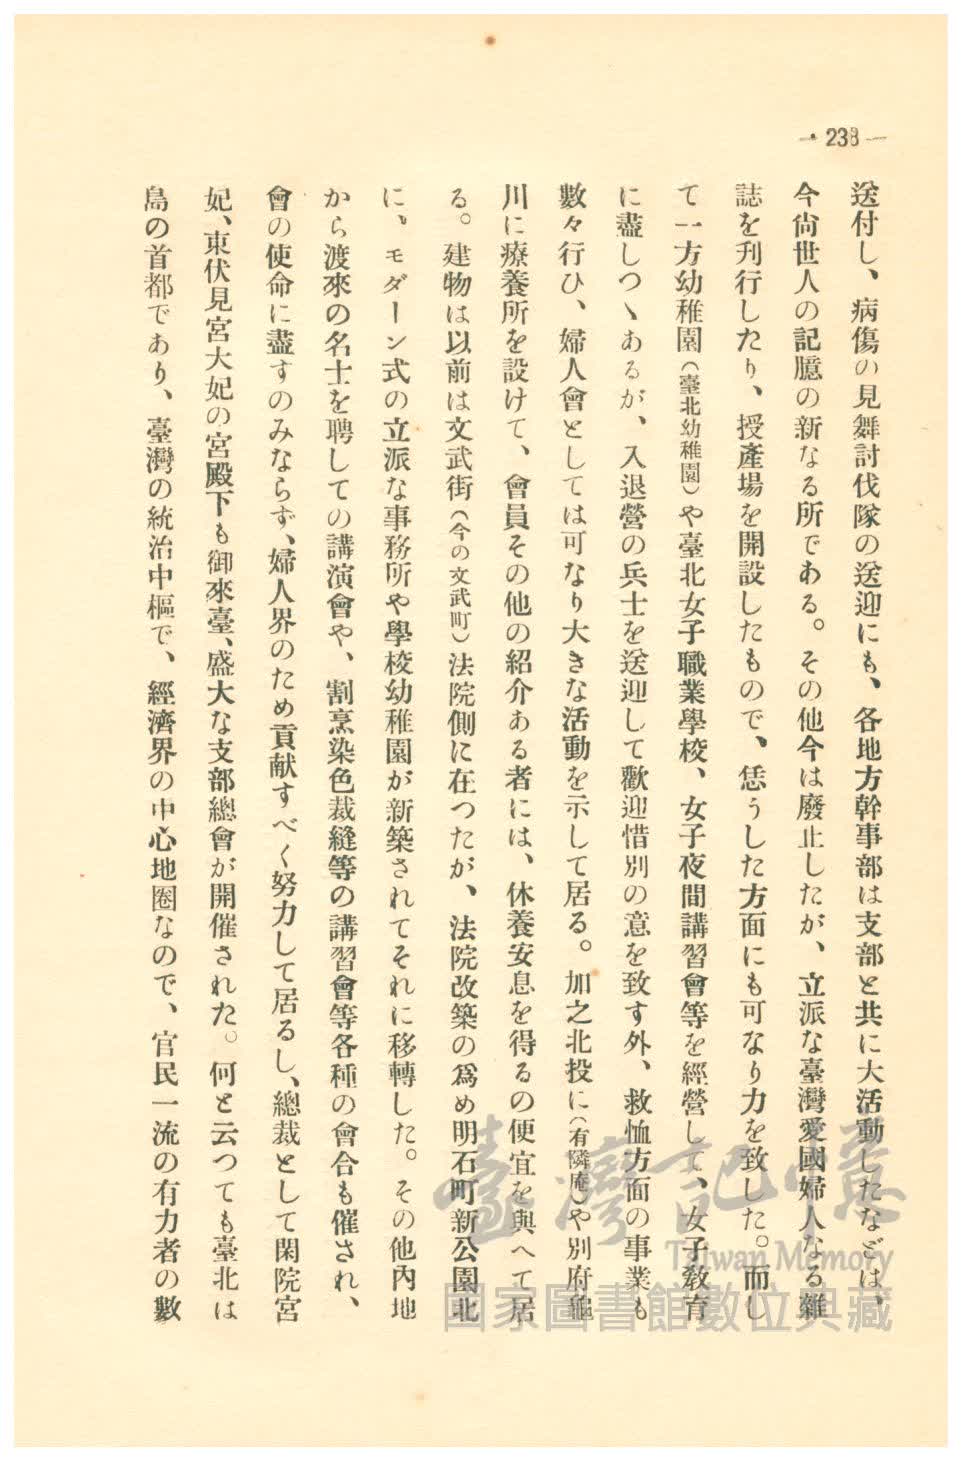 — 238 —
送付し、病傷の見舞討伐隊の送迎にも、各地方幹事部は支部と共に大活動したなどは、
今尙世人の記臆の新なる所である。その他今は廢止したが、立派な臺灣愛國婦人なる雜
誌を刋行したり、授產場を開設したもので、恁うした方面にも可なり力を致した。而し
て一方幼稚園(臺北幼稚園)や臺北女子職業學校、女子夜間講習會等を經營して、女子敎育
に盡しつゝあるが、入退營の兵士を送迎して歡迎惜別の意を致す外、救恤方面の事業も
數々行ひ、婦人會としては可なり大きな活動を示して居る。加之北投に(有隣庵)や別府龜
川に療養所を設けて、會員その他の紹介ある者には、休養安息を得るの便宜を與へて居
る。建物は以前は文武街(今の文武町)法院側に在つたが、法院改築の爲め明石町新公園北
に、モダーン式の立派な事務所や學校幼稚園が新築されてそれに移轉した。その他內地
から渡來の名士を聘しての講演會や、割烹染色裁縫等の講習會等各種の會合も催され、
會の使命に盡すのみならず、婦人界のため貢献すべく努力して居るし、總裁として閑院宮
妃、東伏見宮大妃の宮殿下も御來臺、盛大な支部總會が開催された。何と云つても臺北は
島の首都であり、臺灣の統治中樞で、經濟界の中心地圈なので、官民一流の有力者の數
臺灣記憶
Taiwan Memory
國家圖書館數位典藏